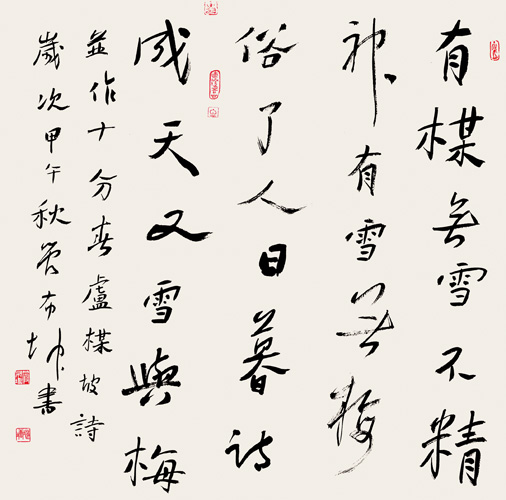 有楳無雪不精
神有雪無
俗了人日暮詩
成天又雪與梅
並作十分春盧楳坡詩
歲次甲午秋布坤書